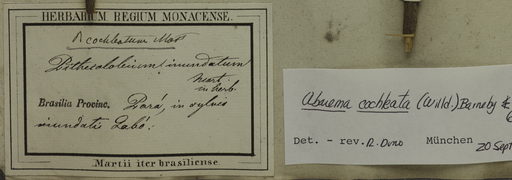 HERBARIUM REGIUM MONACENSE.
P. cochleatum Mart
Pithecolobium inundatum
Mart.
in herb.
Brasilia Provinc. Pará, in sylvis
inundatis
Martii iter brasiliense.
Abarema cochleata (Willd.) Barneby &
Det. - rev. R. Dino München
20 Sept